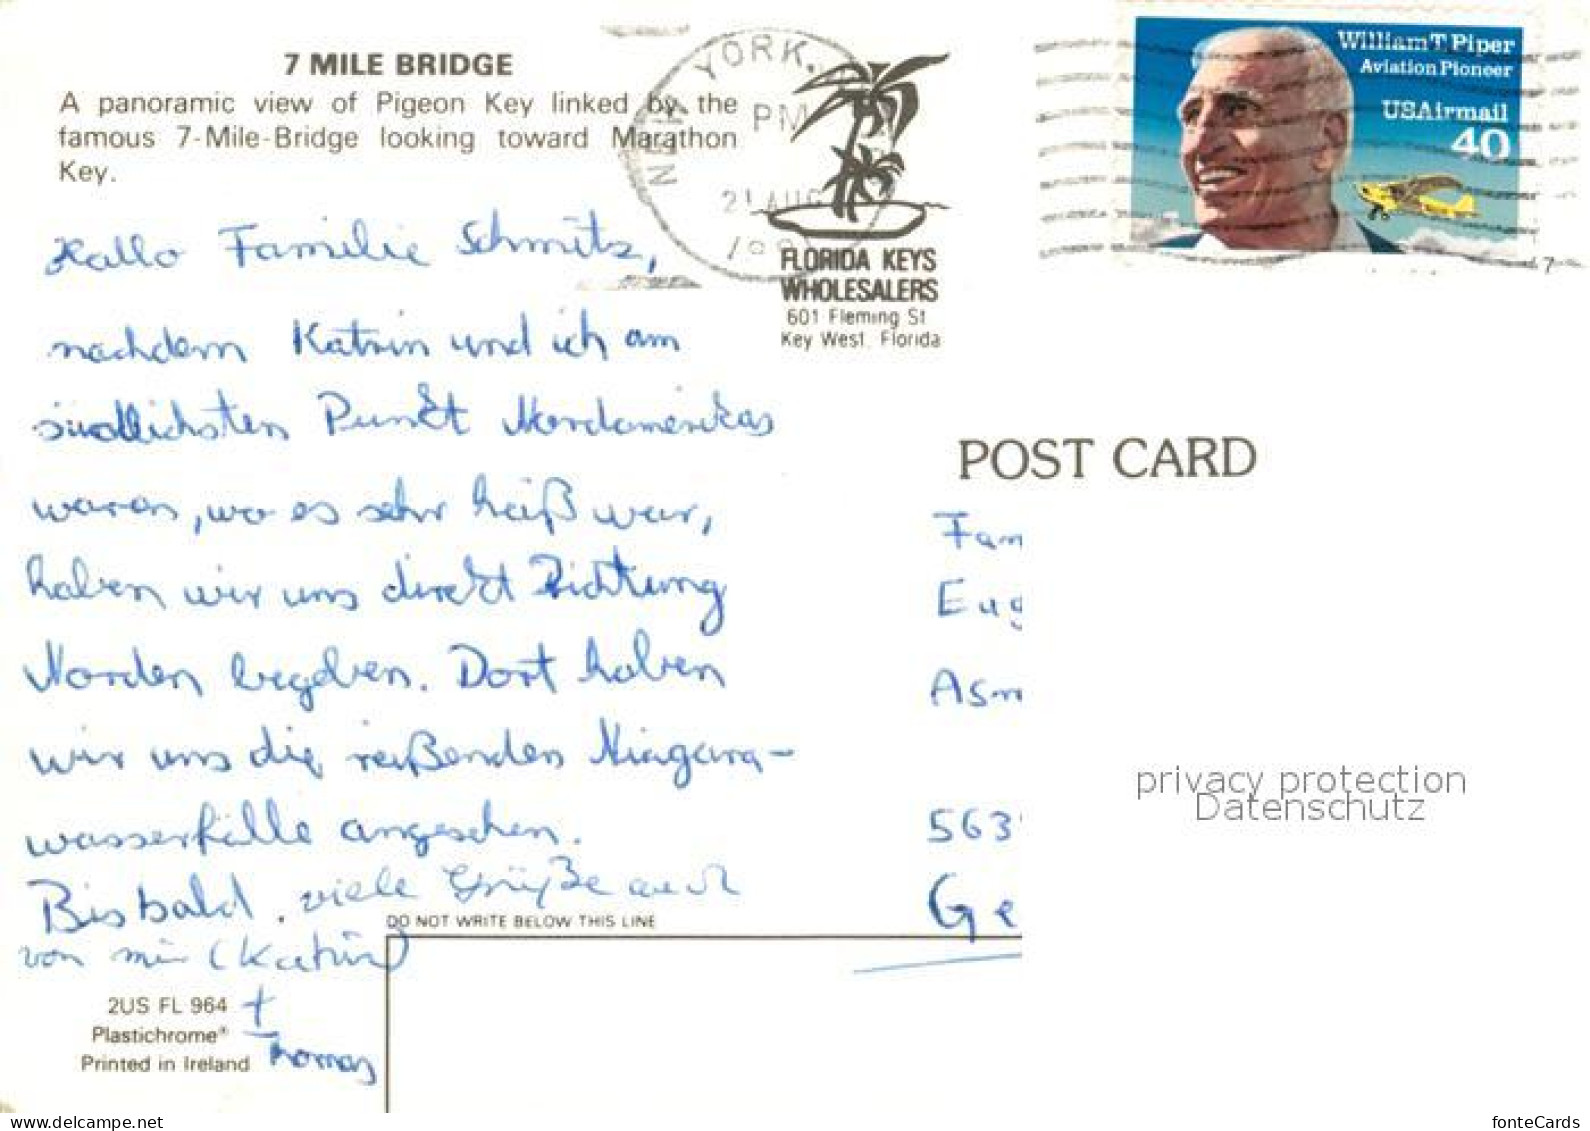 7 MILE BRIDGE
A panoramic view of Pigeon Key linked by the
famous 7-Mile-Bridge looking toward Marathon
Key.
NEW YORK,
PM
21 AUG
William T. Piper
Aviation Pioneer
USAirmail
40
FLORIDA KEYS
WHOLESALERS
601 Fleming St
Key West, Florida
Hallo Familie Schmitz,
nachdem Katrin und ich am
südlichsten Punkt Nordamerikas
waren, wo es sehr heiß war,
haben wir uns direkt Richtung
Norden begeben. Dort haben
wir uns die reißenden Niagara-
wasserfälle angesehen.
Bis bald. viele Grüße auch
von mir (Katrin)
+
Thomas
DO NOT WRITE BELOW THIS LINE
2US FL 964
Plastichrome®
Printed in Ireland
POST CARD
Fam
Eug
Asm
563
Ge
privacy protection
Datenschutz
www.delcampe.net
fonteCards